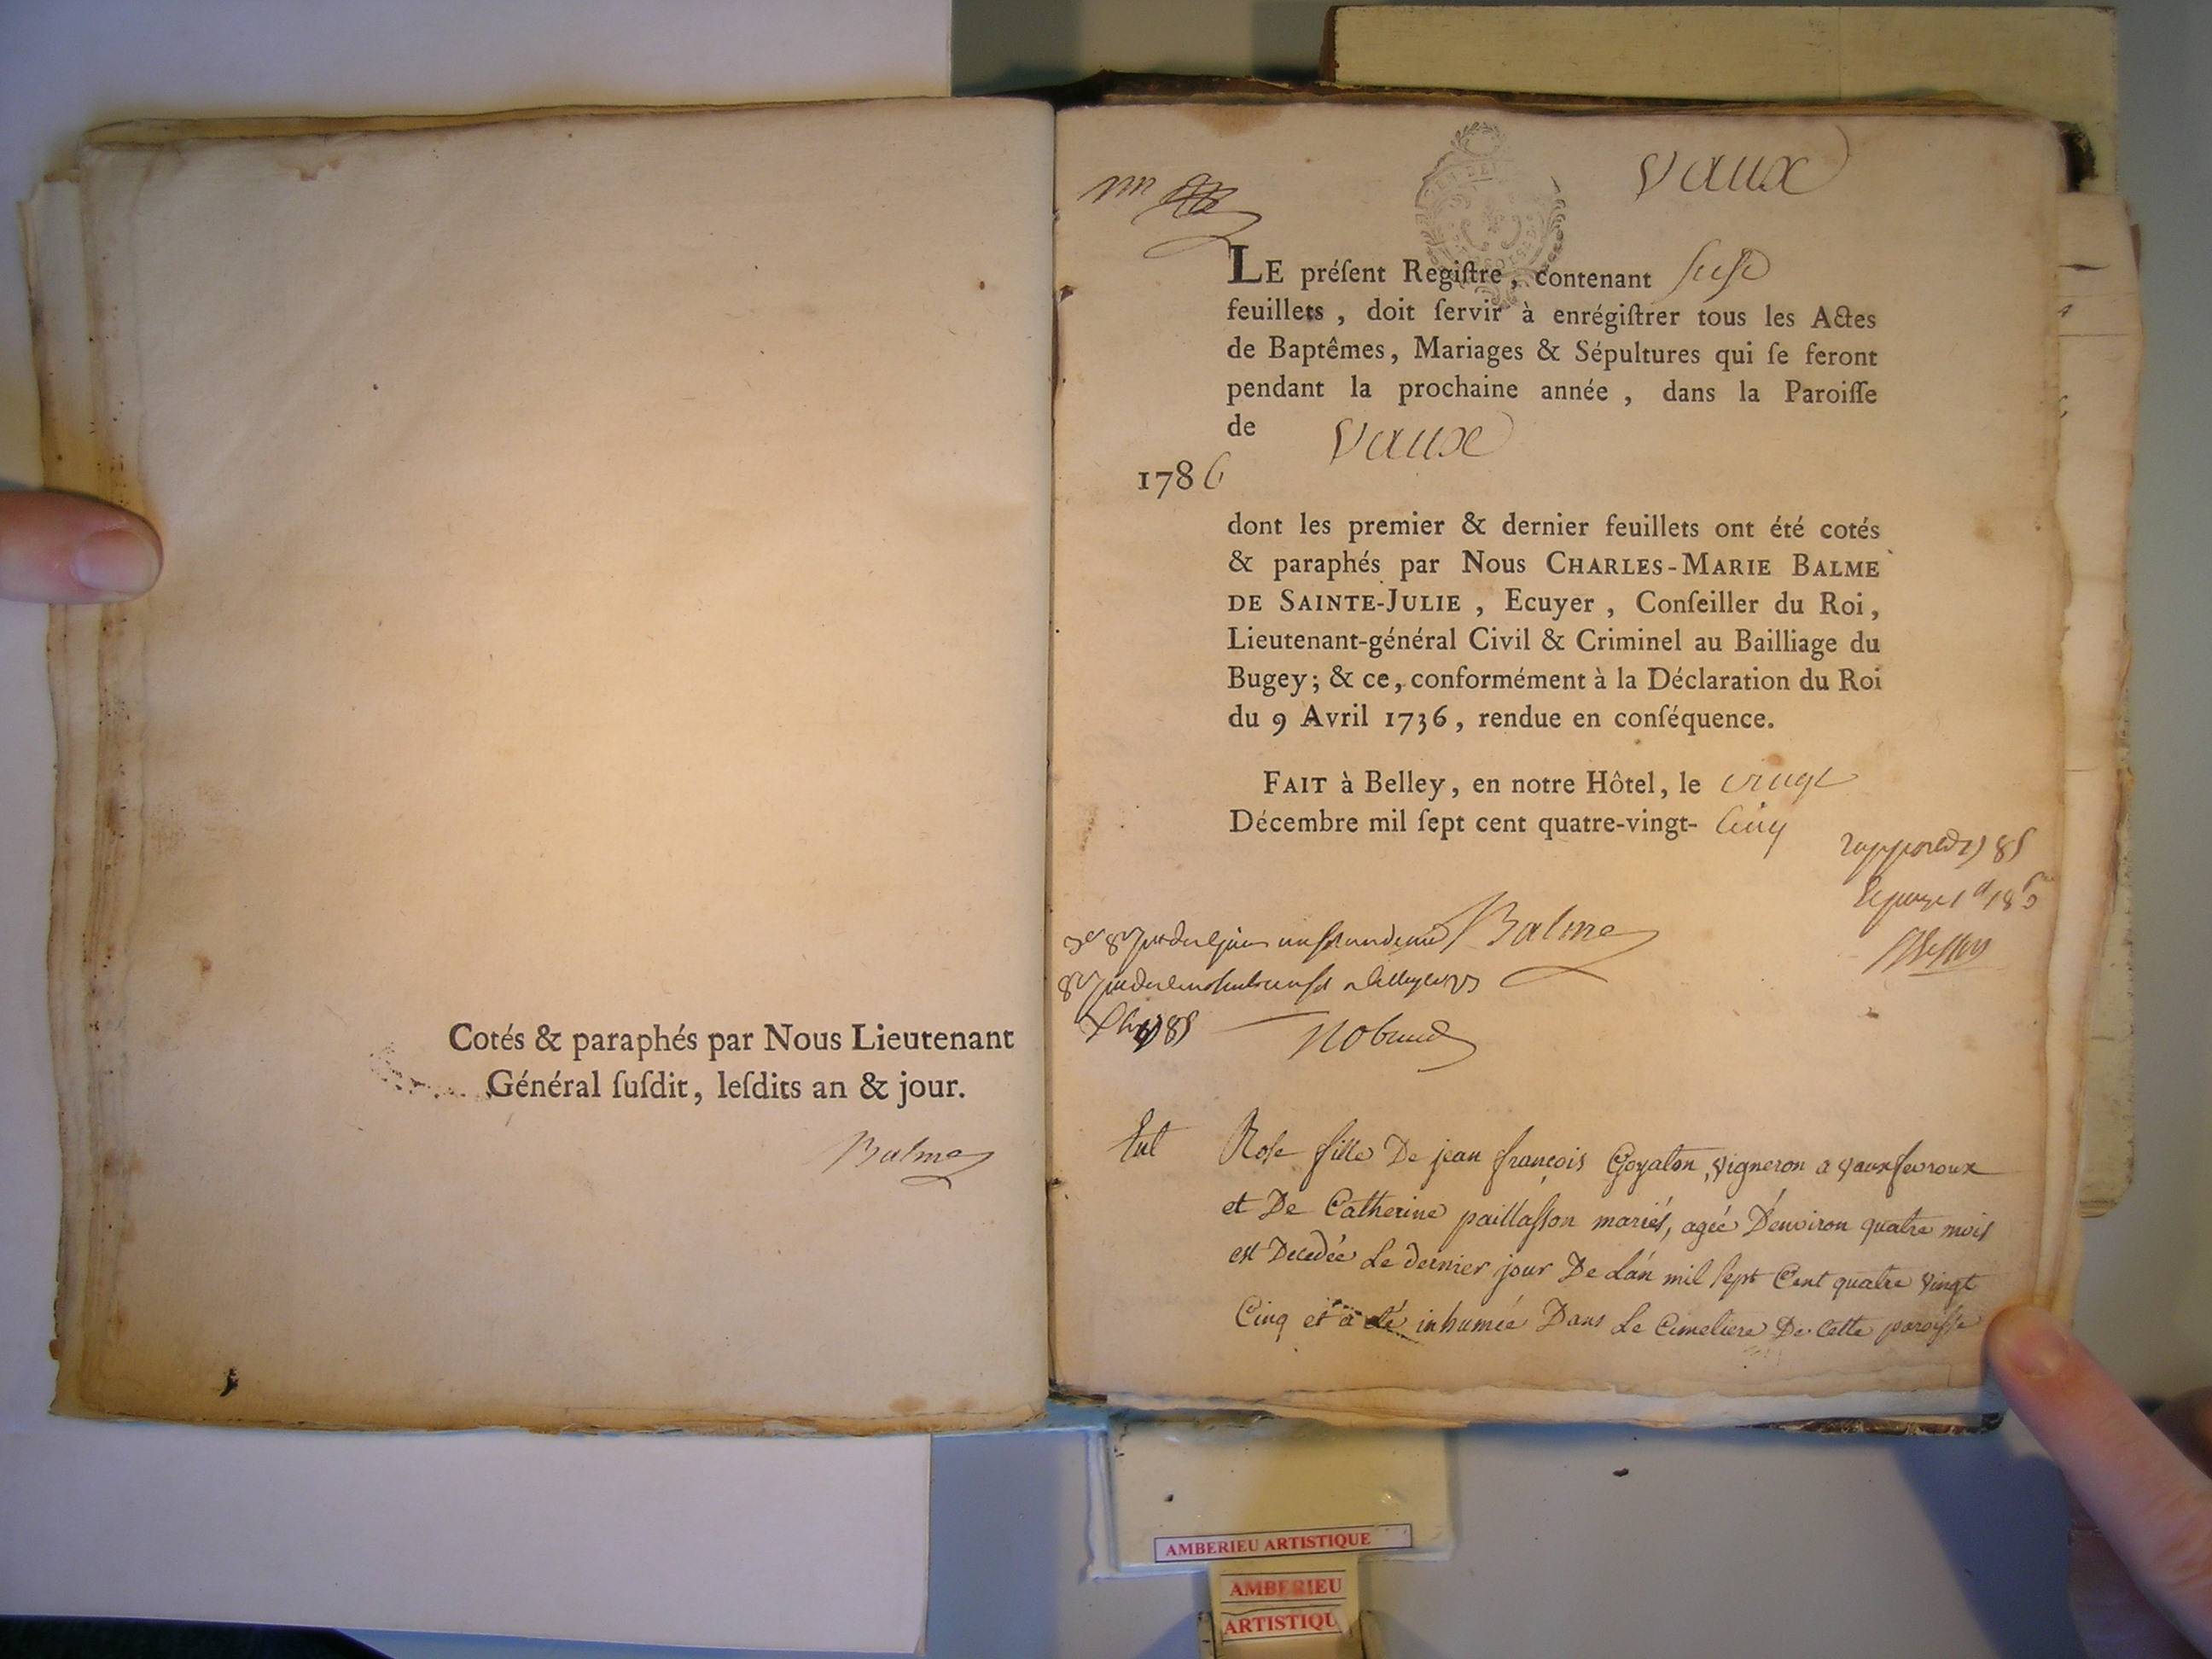 Cotés & paraphés par Nous Lieutenant
Général ſuſdit, leſdits an & jour.
Balme
Vaux
LE préſent Regiſtre, contenant
feuillets, doit ſervir à enrégiſtrer tous les Actes
de Baptêmes, Mariages & Sépultures qui ſe feront
pendant la prochaine année, dans la Paroiſſe
de Vaux
1786
dont les premier & dernier feuillets ont été cotés
& paraphés par Nous CHARLES-MARIE BALME
DE SAINTE-JULIE, Ecuyer, Conſeiller du Roi,
Lieutenant-général Civil & Criminel au Bailliage du
Bugey; & ce, conformément à la Déclaration du Roi
du 9 Avril 1736, rendue en conſéquence.
FAIT à Belley, en notre Hôtel, le vingt
Décembre mil ſept cent quatre-vingt- Cinq
Balme
Rose fille De jean françois Goyaton, vigneron a vaux
et De Catherine paillasson mariés, agée D'environ quatre mois
est Decedée Le dernier jour De L'an mil sept Cent quatre vingt
Cinq et a été inhumée Dans Le Cimetiere De Cette paroisse
AMBERIEU ARTISTIQUE
AMBERIEU
ARTISTIQU